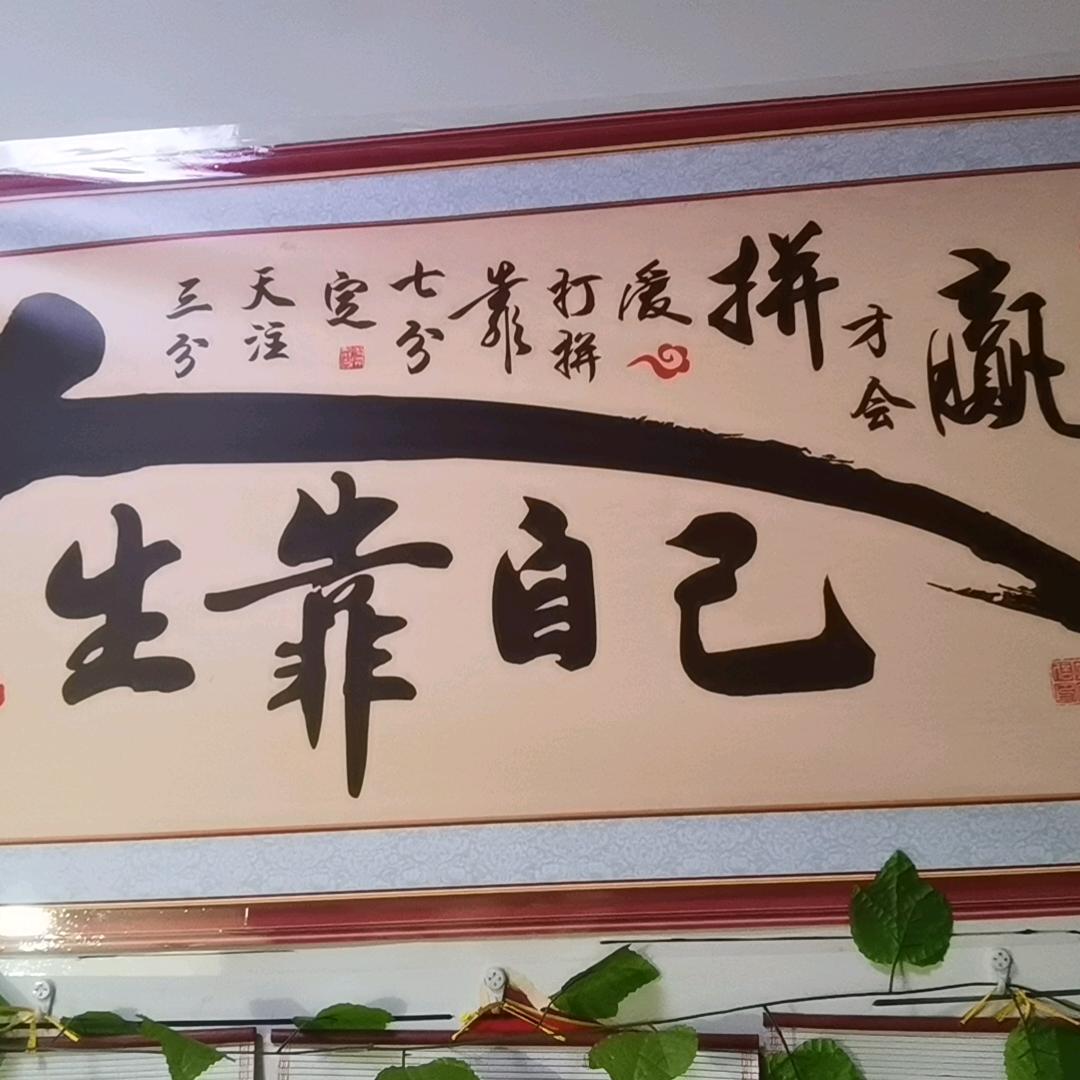 三分天注定七分靠打拼爱拼才会赢
人生靠自己